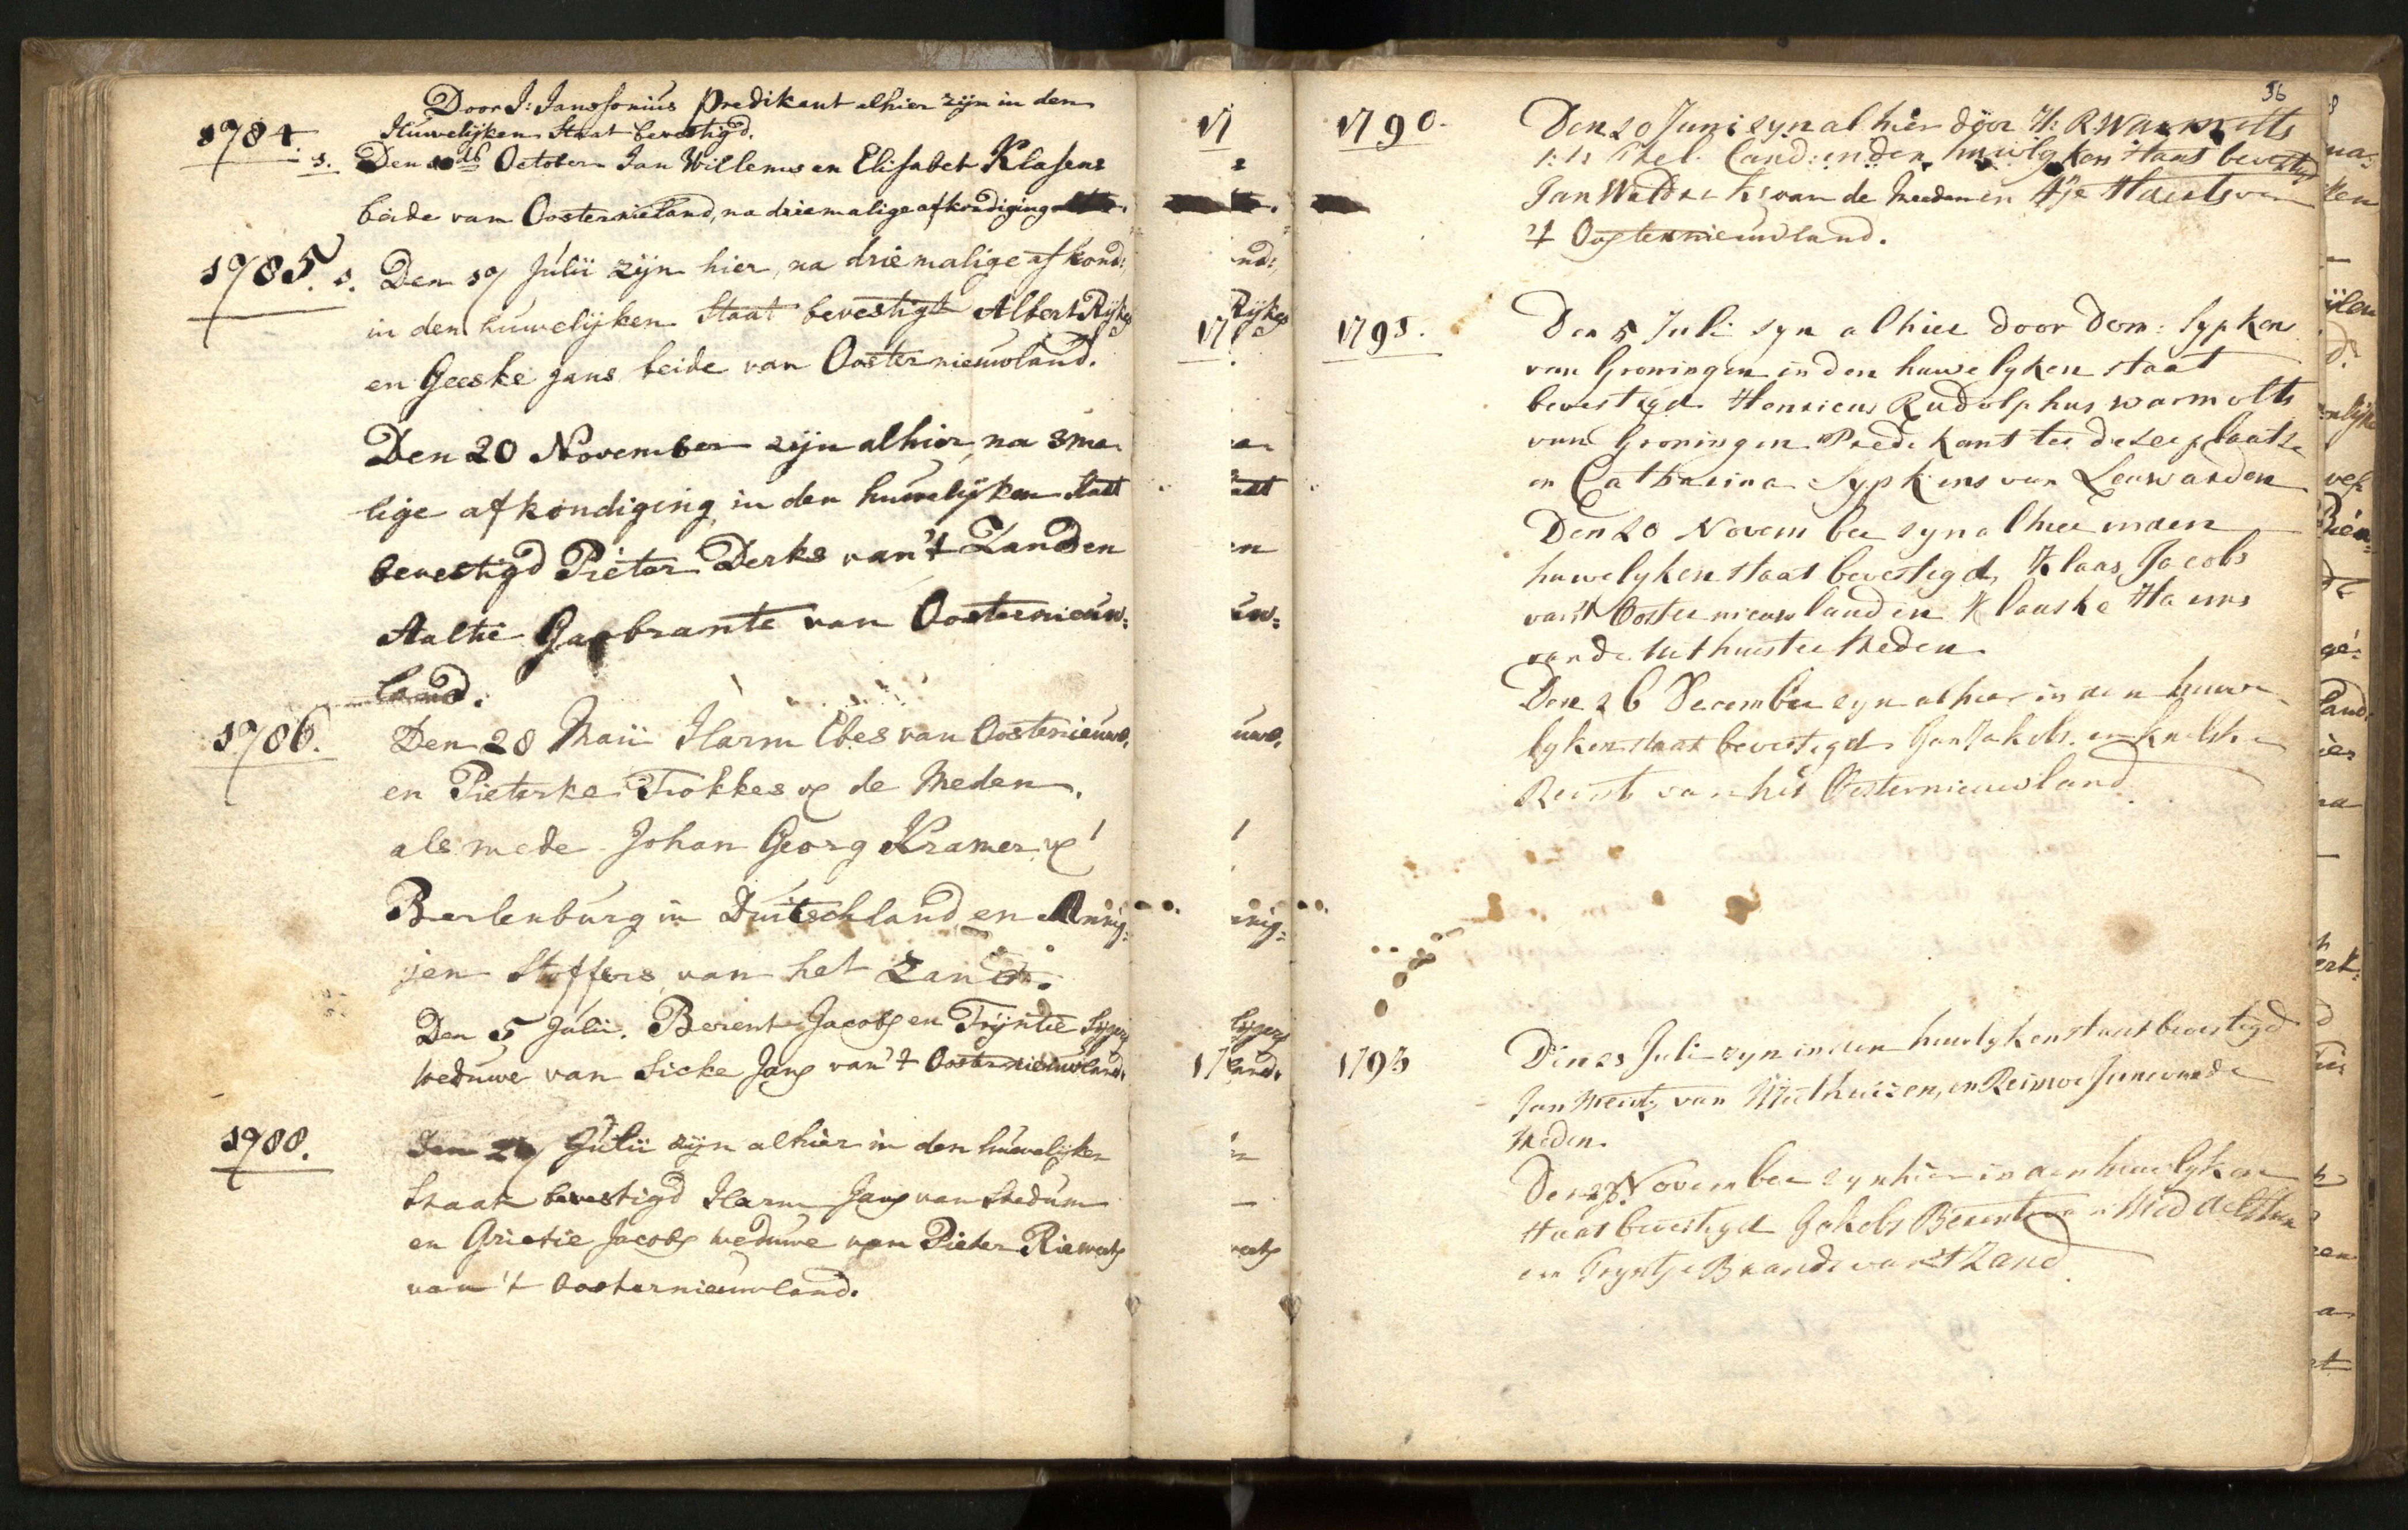 Door J: Janssonius Predikant alhier zijn in den
1784. Huwelijken Staat bevestigd.
1. Den October Jan Willems en Elisabet Klasens
beide van Oosternieland, na driemalige afkondiging
1785. 1. Den 17 Julii zijn hier, na driemalige afkond:
in den huwelijken Staat bevestigt Albert Rijkes
en Geeske Jans beide van Oosternieuwland.
Den 20 November zijn alhier, na 3ma
lige afkondiging in den huwelijken staat
bevestigd Pieter Derks van 't Zand en
Aaltie Garbrants van Oosternieuw:
land.
1786. Den 28 Maii Harm Ebes van Oosternieuwl.
en Pieterke Fokkes de Meden.
als mede Johan Georg Kramer
Berlenburg in Duitschland, en Annig:
jen Stoffers, van het Zand.
Den 5 Julii. Berent Jacobs en Trijntie
weduwe van Sicke Jans van 't Oosternieuwland.
1788. Den 27 Julii zijn alhier in den huwelijken
Staat bevestigd Harm Jans van Stedum
en Grietie Jacobs weduwe van Pieter Riewerts
van 't Oosternieuwland.
56
1790. Den 20 Juni syn alhier door H: R. Warmolts
Cand: in den huwlyken staat bevestigd
Jan van de Meeden en van
't Oosternieuwland.
1795. Den 5 Juli syn alhier door Dom: Sypkens
van Groningen in den huwelyken staat
bevestigd Henricus Rudolphus Warmolts
van Groningen Predikant ter dezer plaatse
en Catharina Sypkens van Leuwarden
Den 20 November syn alhier in den
huwelyken staat bevestigd, Klaas Jacobs
van 't Oosternieuwland en Klaaske Harms
van de Uithuister Meden
Den 26 December syn alhier in den huwe
lyken staat bevestigd Jan Jakobs en
van het Oosternieuwland.
1793 Den 23 Juli zyn in den huwlyken staat bevestigd
Jan van Uithuizen, en van de
Meden.
Den November zyn hier in den huwlyken
staat bevestigd Jakob Berents van Middelstum
en Tryntje Brands van 't Zand.